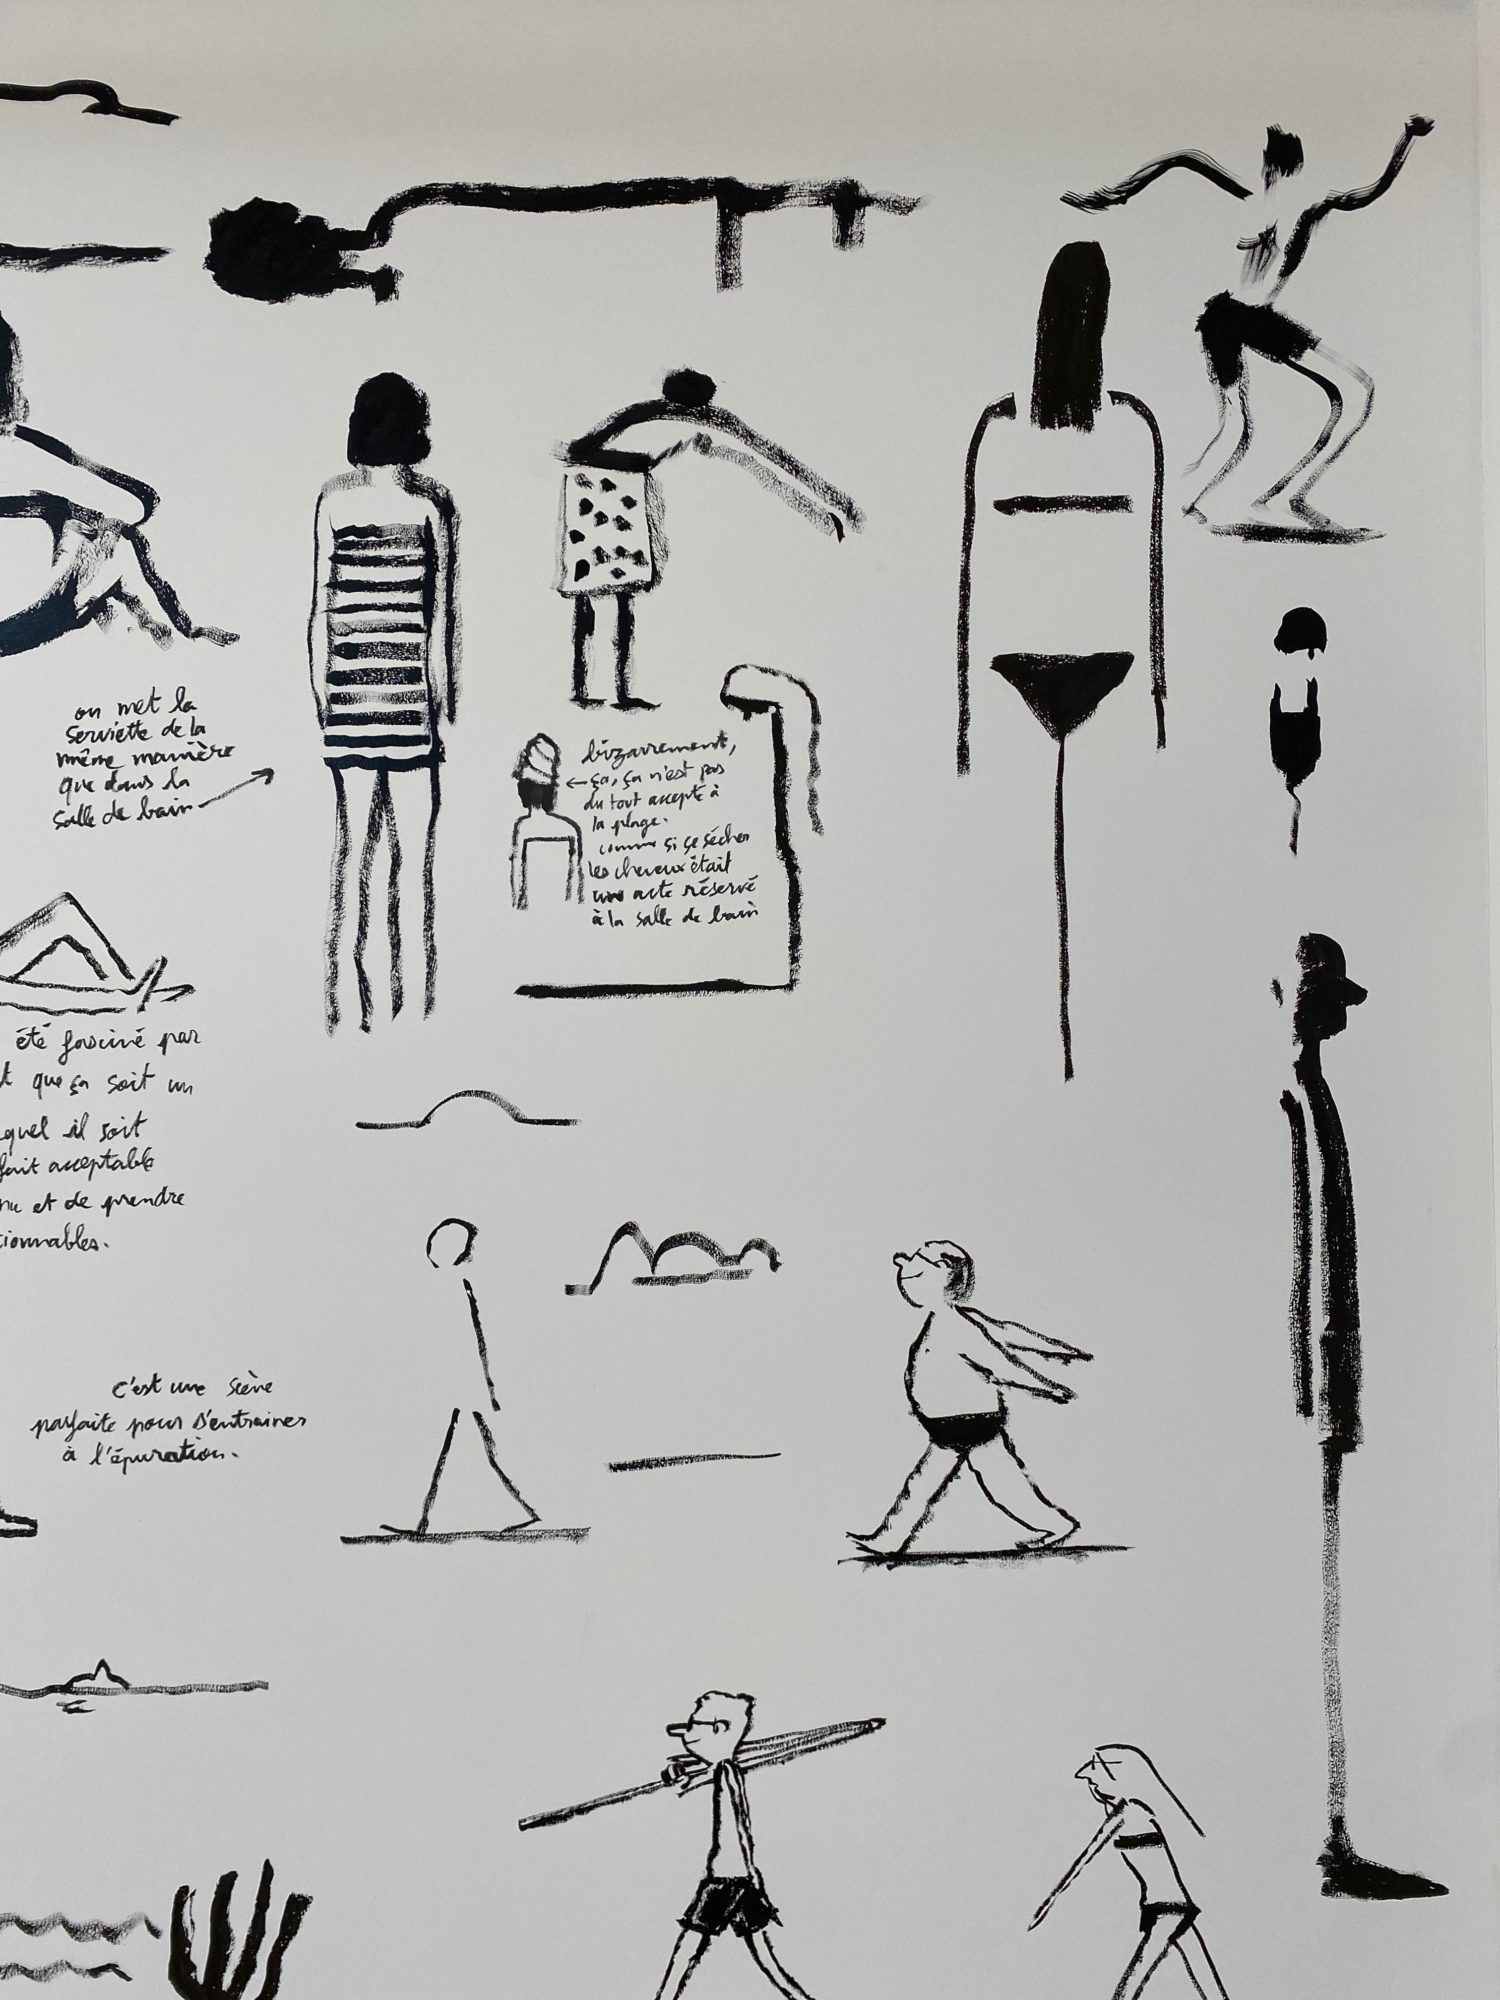 on met la
serviette de la
même manière
que dans la
salle de bain
bizarrement,
ça, ça n'est pas
du tout accepté à
la plage.
comme si se sécher
les cheveux était
une acte réservé
à la salle de bain
été fasciné par
t que ça soit un
quel il soit
fait acceptable
nu et de prendre
tionnables.
C'est une scène
parfaite pour s'entrainer
à l'épuration.